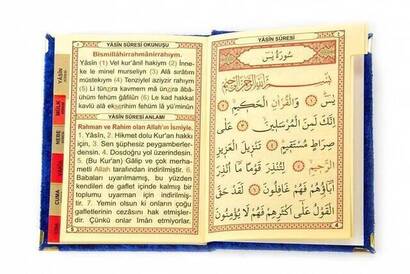 YÂSÎN SÛRESİ OKUNUŞU
Bismillâhirrahmânirrahîym.
Yâsîn (1) Vel kur'ânil hakiym (2) İnne-
ke le minel murseliyn (3) Alâ sırâtım
müstekıym (4) Tenziylel aziyzir rahıym
(5) Li tünzira kavmem mâ ünzira âbâ-
ühüm fehüm ğâfilûn (6) Le kad hakkal
kavlü alâ ekserihim fehüm lâ yü'minûn
YÂSÎN SÛRESİ ANLAMI
Rahman ve Rahim olan Allah'ın İsmiyle.
1. Yâsîn, 2. Hikmet dolu Kur'an hakkı
için, 3. Sen şüphesiz peygamberler-
densin. 4. Dosdoğru yol üzerindesin.
5. (Bu Kur'an) Gâlip ve çok merha-
metli Allah tarafından indirilmiştir. 6.
Babaları uyarılmamış, bu yüzden
kendileri de gaflet içinde kalmış bir
toplumu uyarman için indirilmiş-
tir. 7. Yemin olsun ki onların çoğu
gafletlerinin cezasını hak etmişler-
dir. Çünkü onlar İman etmiyorlar.
5
YÂSÎN
MÜLK
NEBE
CUMA
YÂSÎN SÛRESİ
سُورَةُ يٰسٓ
بِسْمِ اللّٰهِ الرَّحْمٰنِ الرَّحِيمِ
يٰسٓ ﴿١﴾ وَالْقُرْاٰنِ الْحَكِيمِ ﴿٢﴾
اِنَّكَ لَمِنَ الْمُرْسَلِينَ ﴿٣﴾ عَلٰى
صِرَاطٍ مُسْتَقِيمٍ ﴿٤﴾ تَنْزِيلَ الْعَزِيزِ
الرَّحِيمِ ﴿٥﴾ لِتُنْذِرَ قَوْمًا مَٓا اُنْذِرَ
اٰبَٓاؤُ۬هُمْ فَهُمْ غَافِلُونَ ﴿٦﴾ لَقَدْ حَقَّ
الْقَوْلُ عَلٰٓى اَكْثَرِهِمْ فَهُمْ لَا يُؤْمِنُونَ
4